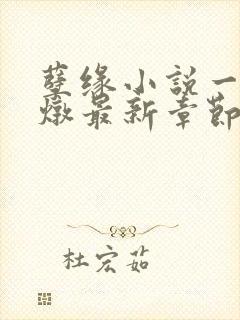 孽缘小说一
燉最新章節
杜宏茹